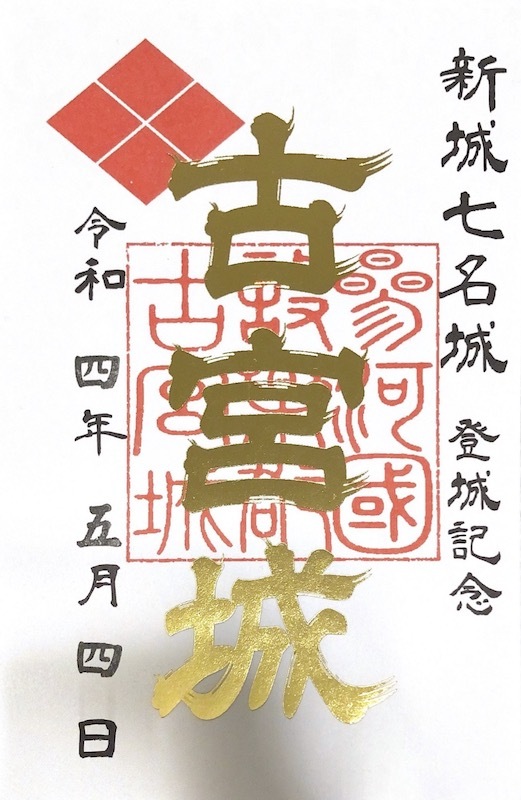 新城七名城 登城記念
古宮城
參河國
古宮城
令和 四年 五月 四日